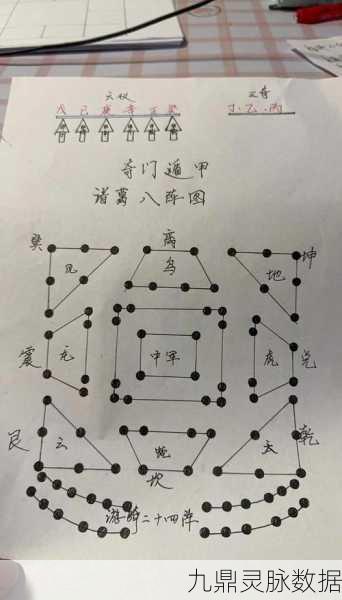 六仪 三奇
戊 己 庚 辛 壬 癸 丁.乙.丙
奇门遁甲
诸葛八阵图
巽 离 坤
风 鸟 地
震 龙 中军 虎 兑
艮 云 蛇 天 乾
坎
游骑二十四阵
九鼎灵脉数据